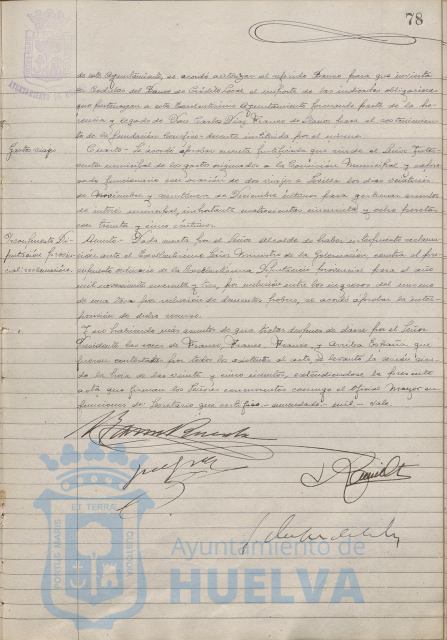 78
de este Ayuntamiento, se acordó autorizar al referido Banco para que invierta
en Cédulas del Banco de Crédito Local el importe de las indicadas obligaciones
que pertenecen a este Excelentísimo Ayuntamiento formando parte de la he-
rencia y legado de Don Carlos Díaz Franco de Llano para el sostenimiento
to de la fundación benéfico-docente instituida por el mismo.
Gastos viaje
Cuarto - Se acordó aprobar cuenta justificada que rinde el Señor
municipal de los gastos originados a la Comisión Municipal y
funcionario en ocasión de dos viajes a Sevilla los días catorce
de Noviembre y veintinueve de Diciembre últimos para gestionar asuntos
de interés municipal, importante cuatrocientas cincuenta y ocho pesetas
con treinta y cinco céntimos.
Presupuesto Di-
putación Provin-
cial: reclamación.
Quinto - Dada cuenta por el Señor Alcalde de haber interpuesto reclama-
ción ante el Excelentísimo Señor Ministro de la Gobernación, contra el pre-
supuesto ordinario de la Excelentísima Diputación Provincial para el año
mil novecientos cincuenta y tres, por inclusión entre los ingresos del mismo
de una
por reclusión de dementes pobres, se acordó aprobar la inter-
posición de dicho recurso.
Y no habiendo más asuntos de que tratar después de darse por el Señor
Presidente las voces de Franco, Franco, Franco, y Arriba España que
fueron contestadas por todos los asistentes al acto se levantó la sesión sien-
do la hora de las veinte y cinco minutos, extendiéndose la presente
acta que firman los Señores concurrentes conmigo el Oficial Mayor en
funciones de Secretario que certifico - enmendado - mil - vale.
PORTUS MARIS
ET TERRAE
CUSTODIA
Ayuntamiento de
HUELVA